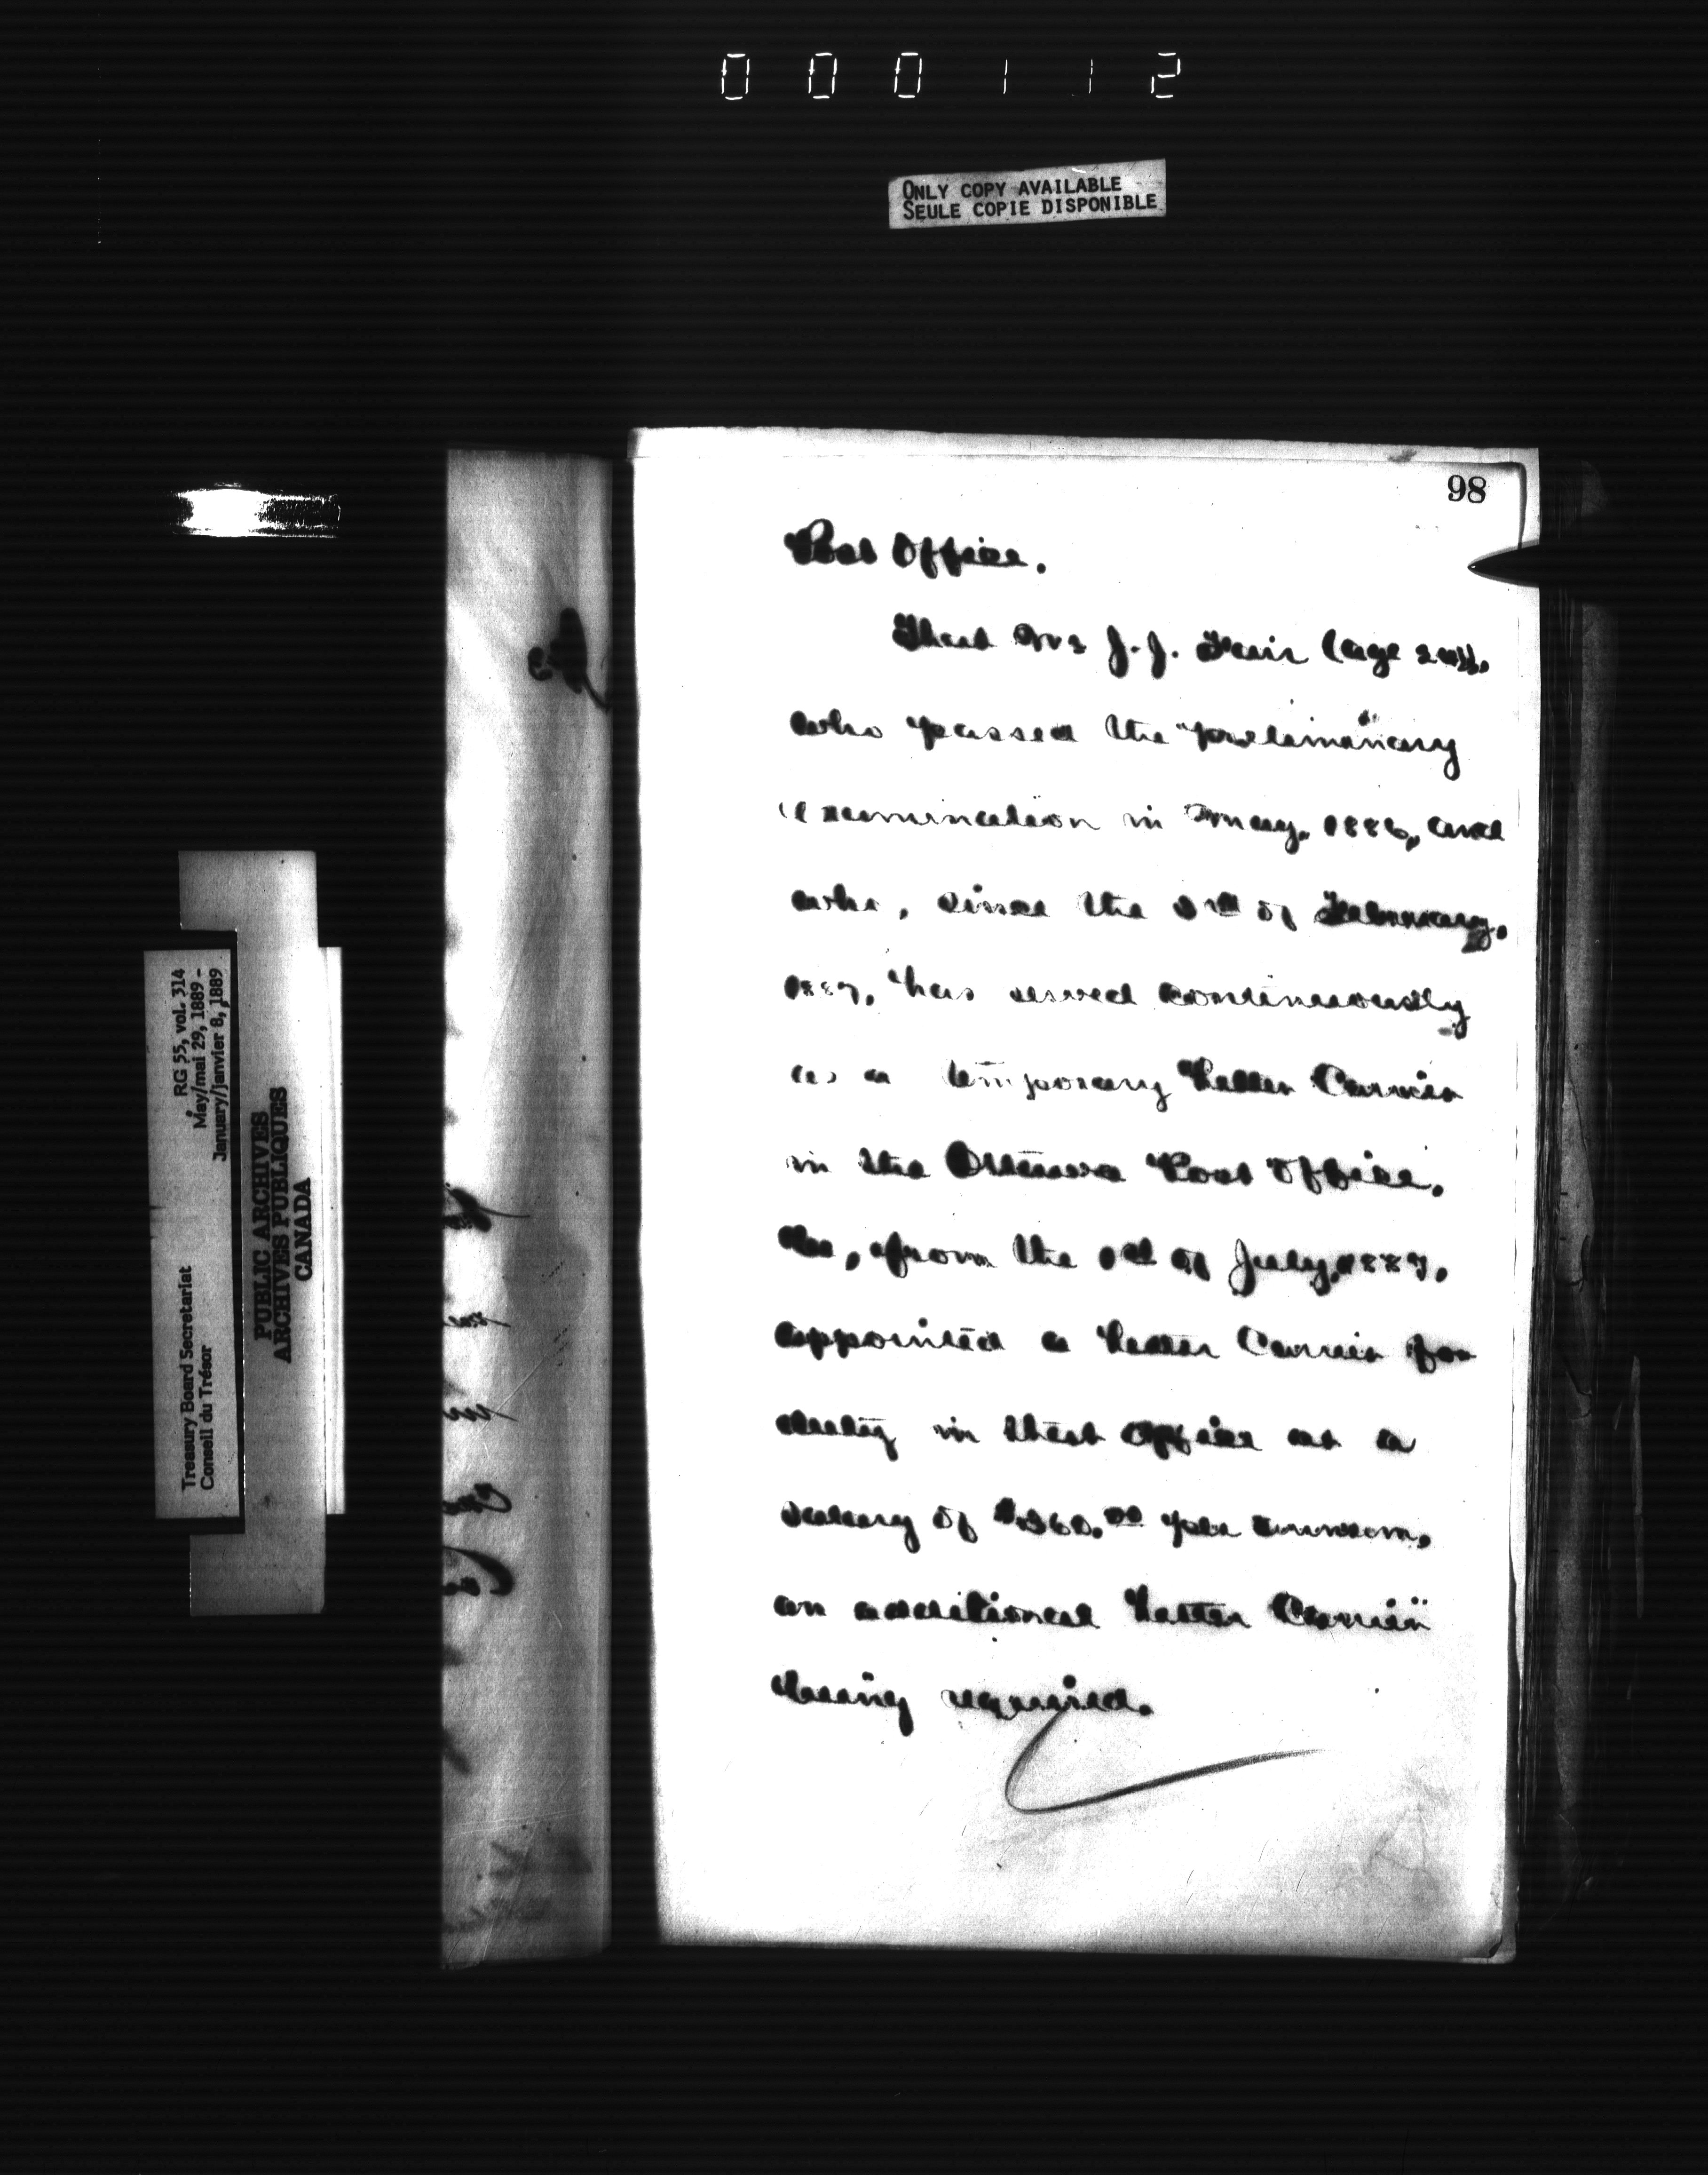 000112
ONLY COPY AVAILABLE
SEULE COPIE DISPONIBLE
98
Post Office.
That Mr J. J. Fair (age
who passed the preliminary
examination in May, 1886, and
who, since the 3rd of February,
1887, has served continuously
as a temporary Letter Carrier
in the Ottawa Post Office,
be, from the 1st of July, 1887,
appointed a Letter Carrier for
duty in that Office at a
salary of $360.00 per annum,
an additional Letter Carrier
being required.
RG 55, vol. 314
May/mai 29, 1889 -
January/janvier 8, 1889
Treasury Board Secretariat
Conseil du Trésor
PUBLIC ARCHIVES
ARCHIVES PUBLIQUES
CANADA